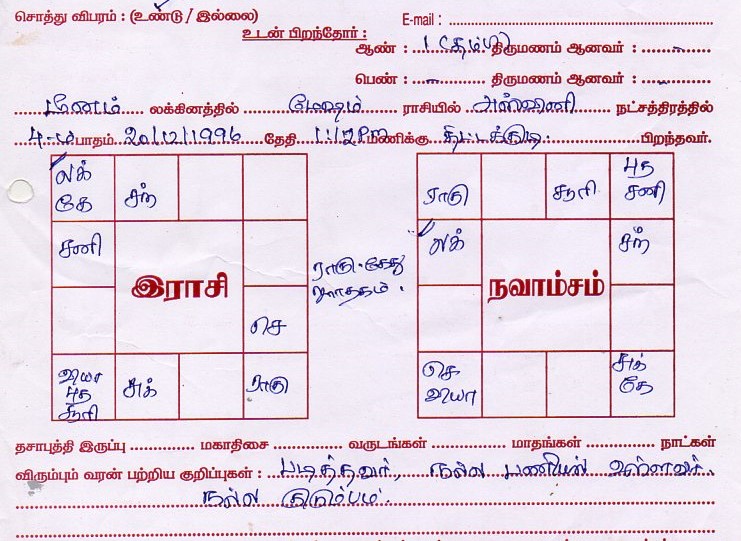 சொத்து விபரம் : (உண்டு / இல்லை) E-mail :
உடன் பிறந்தோர் :
ஆண் : 1 (தம்பி) திருமணம் ஆனவர் : -
பெண் : - திருமணம் ஆனவர் : -
மீனம் லக்கினத்தில் மேஷம் ராசியில் அஸ்வினி நட்சத்திரத்தில்
4-ம் பாதம் 20/12/1996 தேதி 1:12PM மணிக்கு திட்டக்குடி பிறந்தவர்.
லக் கே சந்
சனி
இராசி
செ
வியா புத சூரி சுக் ராகு
ராகு கேது ஜாதகம்.
ராகு சூரி புத சனி
லக் சந்
நவாம்சம்
செ வியா சுக் கே
தசாபுத்தி இருப்பு மகாதிசை வருடங்கள் மாதங்கள் நாட்கள்
விரும்பும் வரன் பற்றிய குறிப்புகள் : படித்தவர், நல்ல பணியில் உள்ளவர்.
நல்ல குடும்பம்.